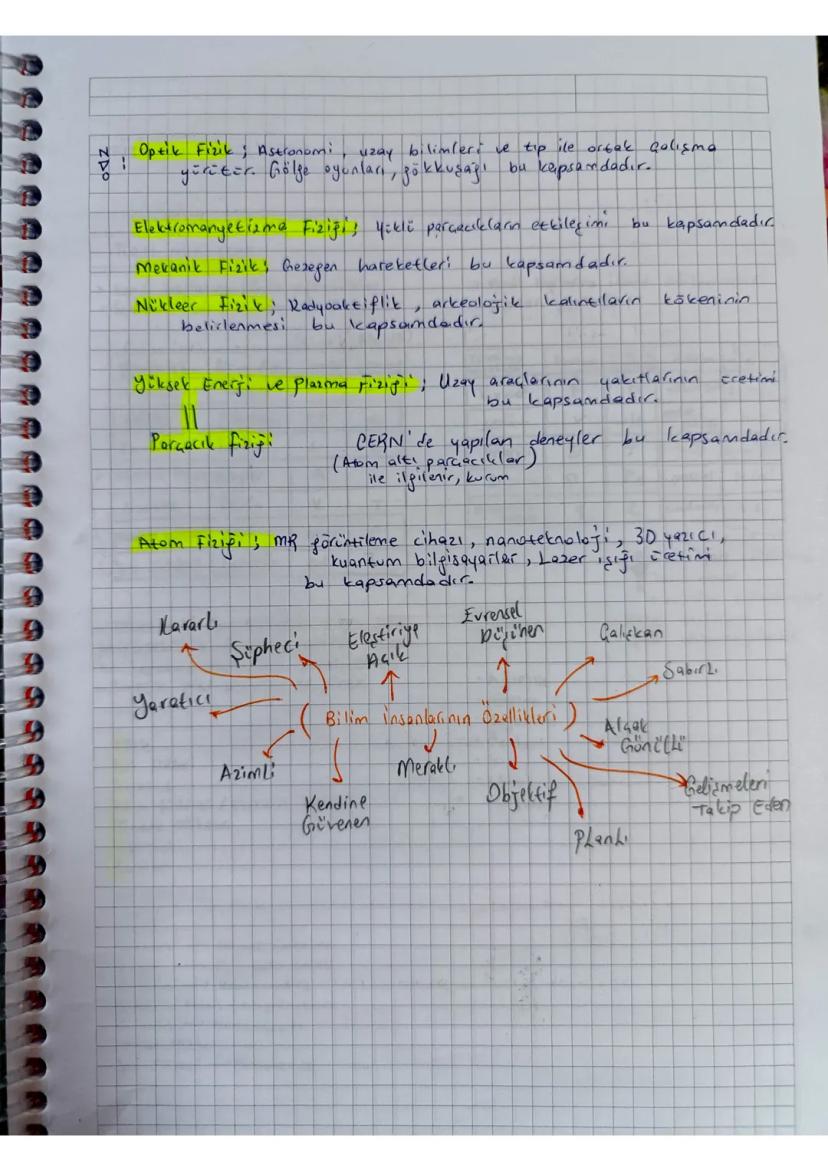 NOV :
Optik Fizik ; Astronomi, uzay bilimleri ve tıp ile ortak çalışma
yürütür. Gölge oyunları, gökkuşağı bu kapsamdadır.
Elektromanyetizma Fiziği ; Yüklü parçacıkların etkileşimi bu kapsamdadır.
Mekanik Fizik ; Gezegen hareketleri bu kapsamdadır.
Nükleer Fizik ; Radyoaktiflik, arkeolojik kalıntıların kökeninin
belirlenmesi bu kapsamdadır.
Yüksek Enerji ve Plazma Fiziği ; Uzay araçlarının yakıtlarının üretimi
bu kapsamdadır.
Parçacık fiziği CERN'de yapılan deneyler bu kapsamdadır.
(Atom altı parçacıklar)
ile ilgilenir, kurum
Atom Fiziği ; MR görüntileme cihazı, nanoteknoloji, 3D yazıcı,
kuantum bilgisayarlar, Lazer ışığı üretimi
bu kapsamdadır.
Kararlı
Şüpheci
Eleştiriye
Açık
Evrensel
Düşünen
Çalışkan
Sabırlı
Yaratıcı
( Bilim insanlarının Özellikleri )
Alçak
Gönüllü
Azimli
Kendine
Güvenen
Meraklı
Objektif
Planlı
Gelişmeleri
Takip Eden